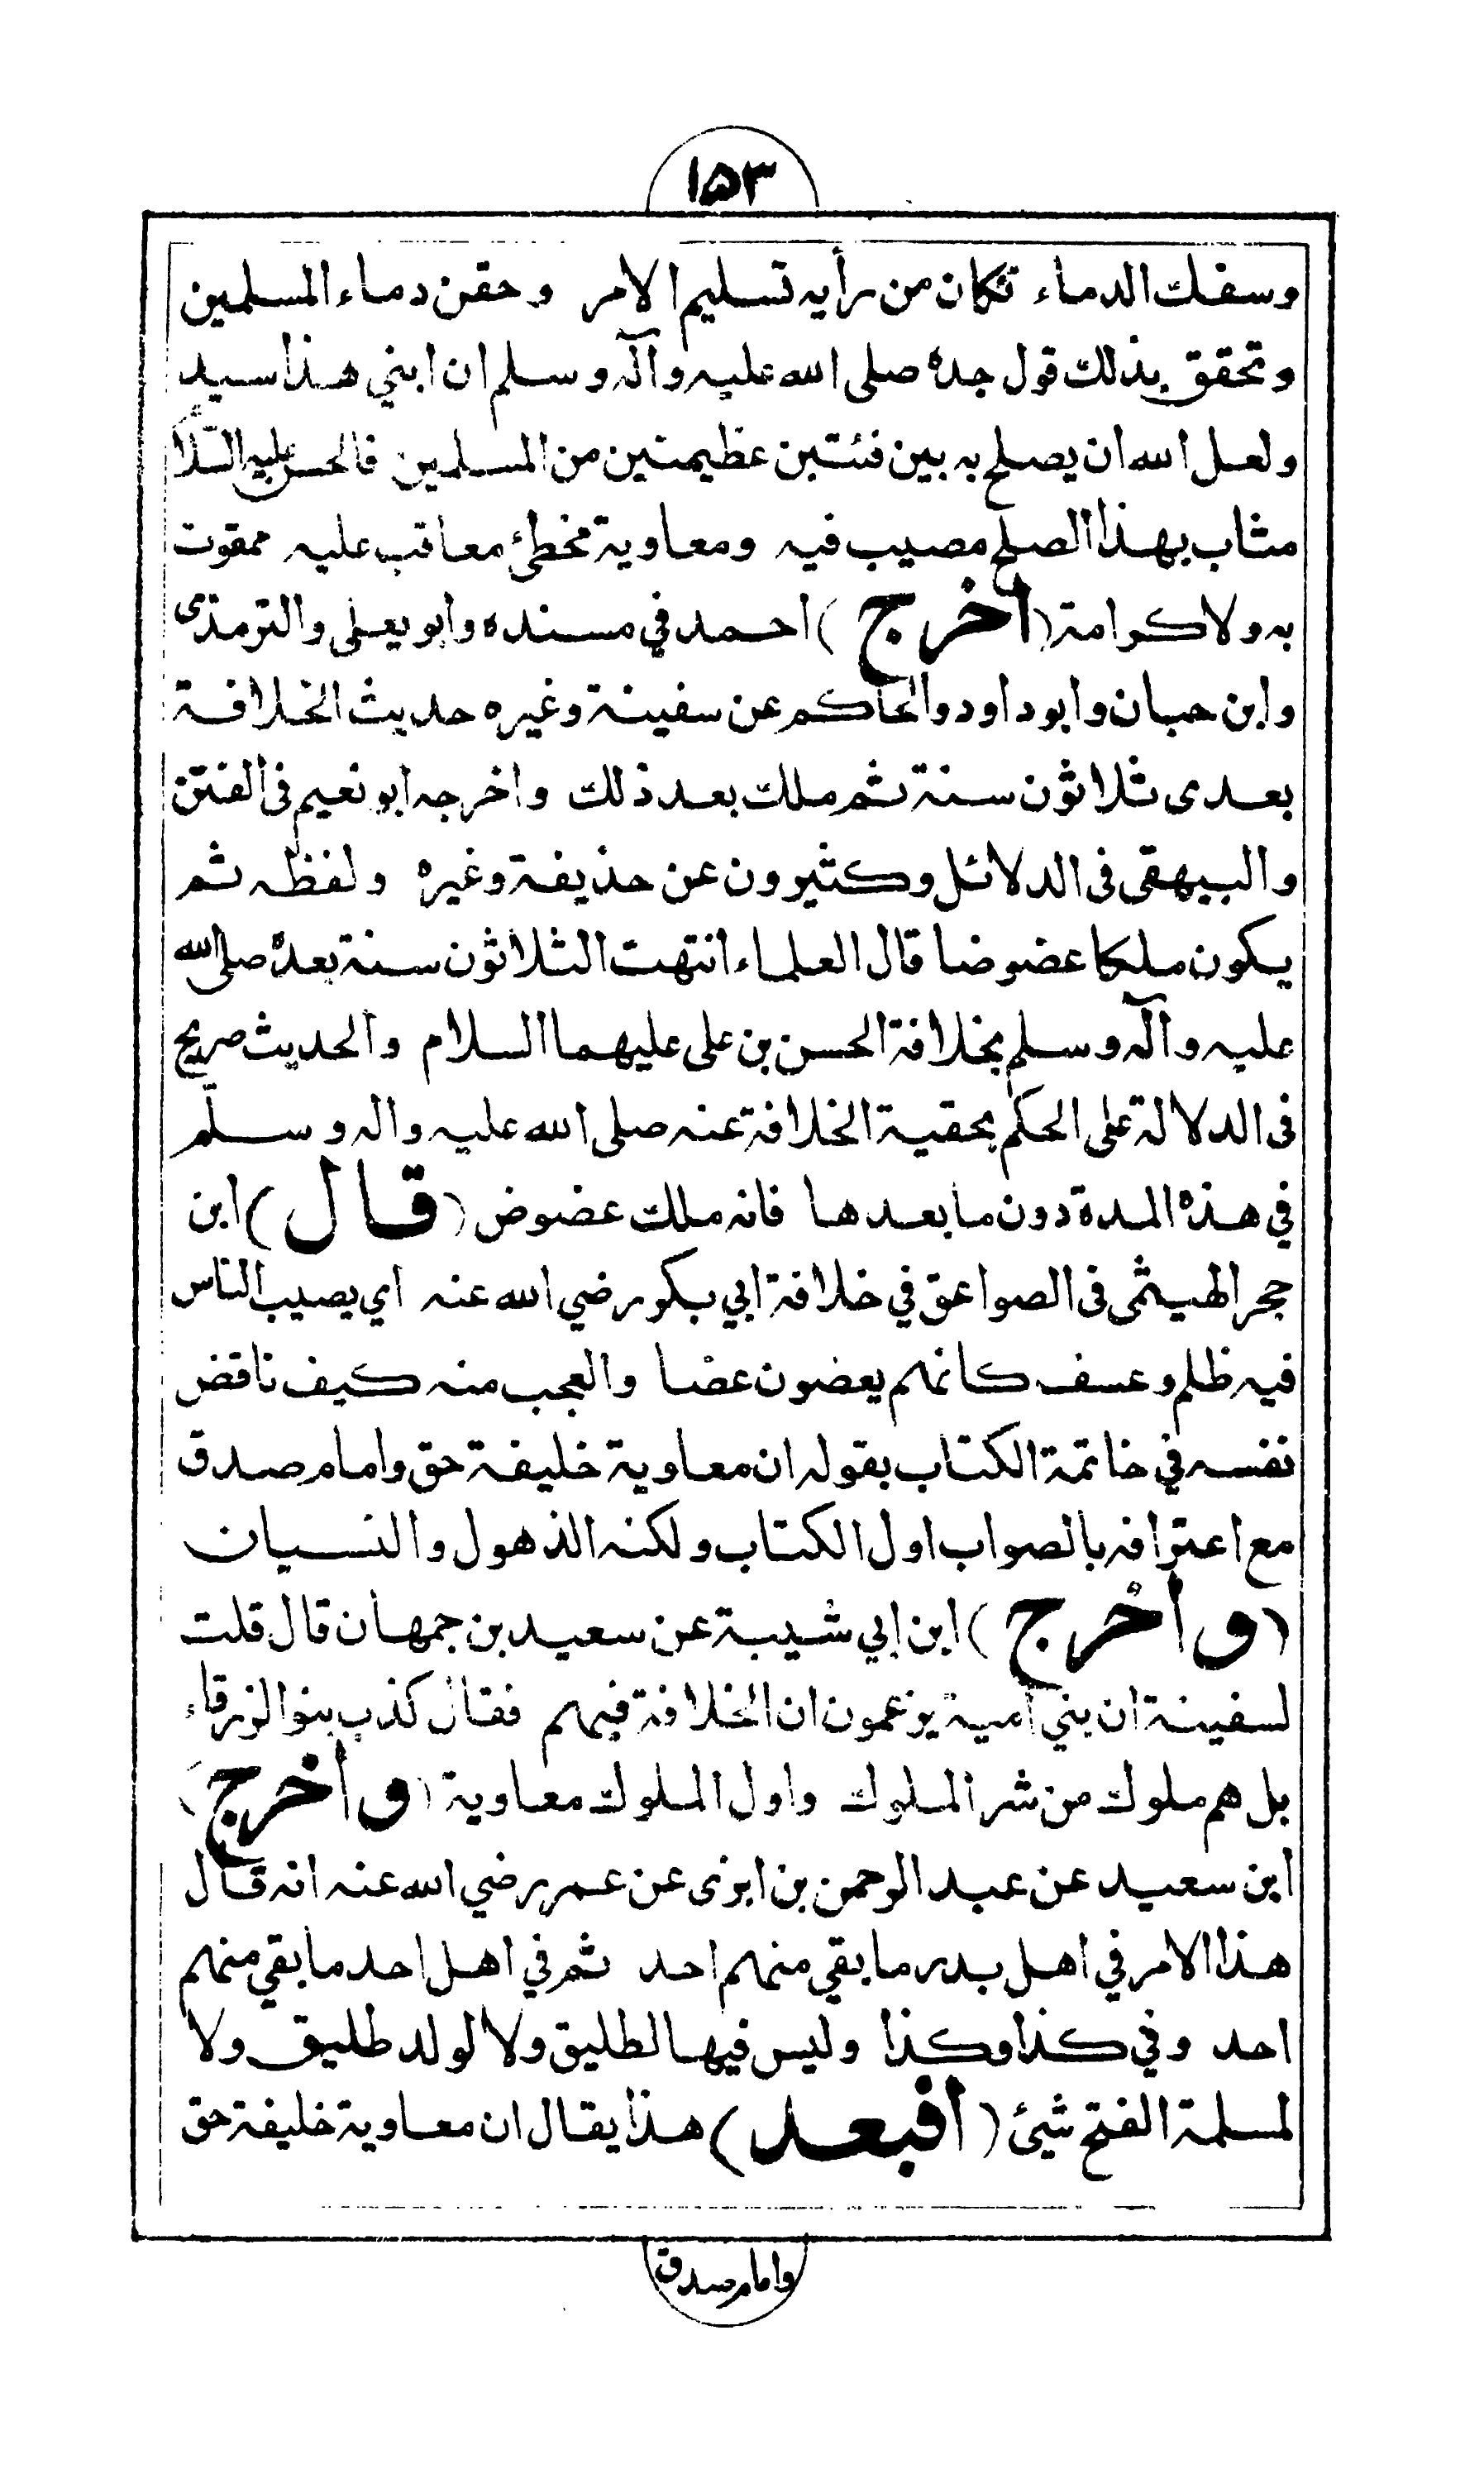 ١٥٣
وسفك الدماء فكان من رأيه تسليم الامر وحقن دماء المسلمين
وتحقق بذلك قول جده صلى الله عليه وآله وسلم ان ابني هذا سيد
ولعل الله ان يصلح به بين فئتين عظيمتين من المسلمين فالحسن عليه السلام
مثاب بهذا الصلح مصيب فيه ومعاوية مخطئ معاقب عليه ممقوت
به ولا كرامة (أخرج) احمد في مسنده وابو يعلى والترمذى
وابن حبان وابو داود والحاكم عن سفينة وغيره حديث الخلافة
بعدى ثلاثون سنة ثم ملك بعد ذلك واخرجه ابو نعيم فى الفتن
والبيهقى فى الدلائل وكثيرون عن حذيفة وغيره ولفظه ثم
يكون ملكا عضوضا قال العلماء انتهت الثلاثون سنة بعده صلى الله
عليه وآله وسلم بخلافة الحسن بن على عليهما السلام والحديث صريح
فى الدلالة على الحكم بحقية الخلافة عنه صلى الله عليه واله وسلّم
في هذه المدة دون ما بعدها فانه ملك عضوض (قال) ابن
حجر الهيثمى فى الصواعق في خلافة ابي بكر رضي الله عنه اي يصيب الناس
فيه ظلم وعسف كانهم يعضون عضا والعجب منه كيف ناقض
نفسه في خاتمة الكتاب بقوله ان معاوية خليفة حق وامام صدق
مع اعترافه بالصواب اول الكتاب ولكنه الذهول والنسيان
(وأخرج) ابن ابي شيبة عن سعيد بن جمهان قال قلت
لسفينة ان بني امية يزعمون ان الخلافة فيهم فقال كذب بنو الزرقاء
بل هم ملوك من شر الملوك واول الملوك معاوية (وأخرج)
ابن سعيد عن عبد الرحمن بن ابزى عن عمر رضي الله عنه انه قال
هذا الامر في اهل بدر ما بقي منهم احد ثم في اهل احد ما بقي منهم
احد وفي كذا وكذا وليس فيها لطليق ولا لولد طليق ولا
لمسلمة الفتح شيئ (أفبعد) هذا يقال ان معاوية خليفة حق
وامام صدق